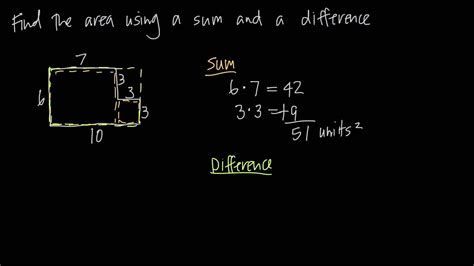 Find the area using a sum and a difference
7
6
3
3
3
10
Sum
6·7=42
3·3=+9
51 units²
Difference